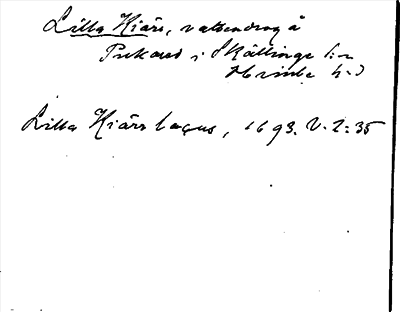 Lilla Kiärr, vattendrag å
i Skällinge s:n
Himle h:d
Lilla Kiärrs bacus, 1693. V. 2:35